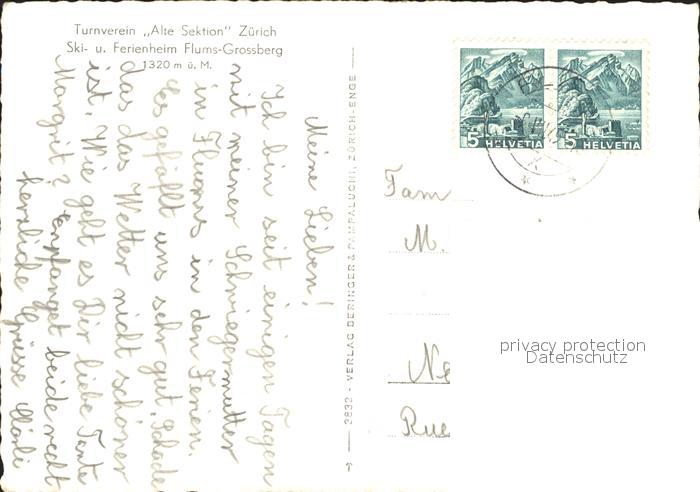 Turnverein „Alte Sektion" Zürich
Ski- u. Ferienheim Flums-Grossberg
1320 m ü. M.
Meine Lieben!
Ich bin seit einigen Tagen
mit meiner Schwiegermutter
in Flums in den Ferien.
Es gefällt uns sehr gut, Schade
das das Wetter nicht schöner
ist. Wie geht es Dir liebe Tante
Margrit? Empfanget beide recht
herzliche Grüsse
2832 - VERLAG BERINGER & PAMPALUCHI, ZÜRICH-ENGE
5 HELVETIA
5 HELVETIA
Fam
M.
Ne
Rue
privacy protection
Datenschutz